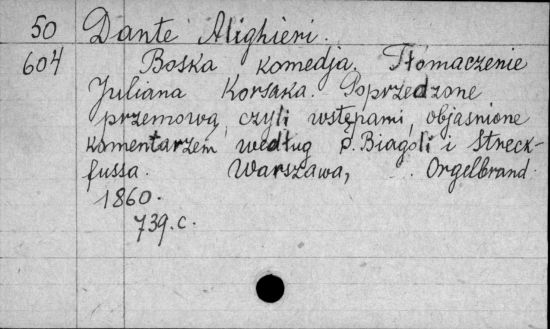 50 Dante Alighieri.
604 Boska komedja. Tłomaczenie
Juljana Korsaka. Poprzedzone
przemową, czyli wstępami, objaśnione
komentarzem według P. Biagoli i Streck-
fussa. Warszawa, Orgelbrand.
1860.
739. c.